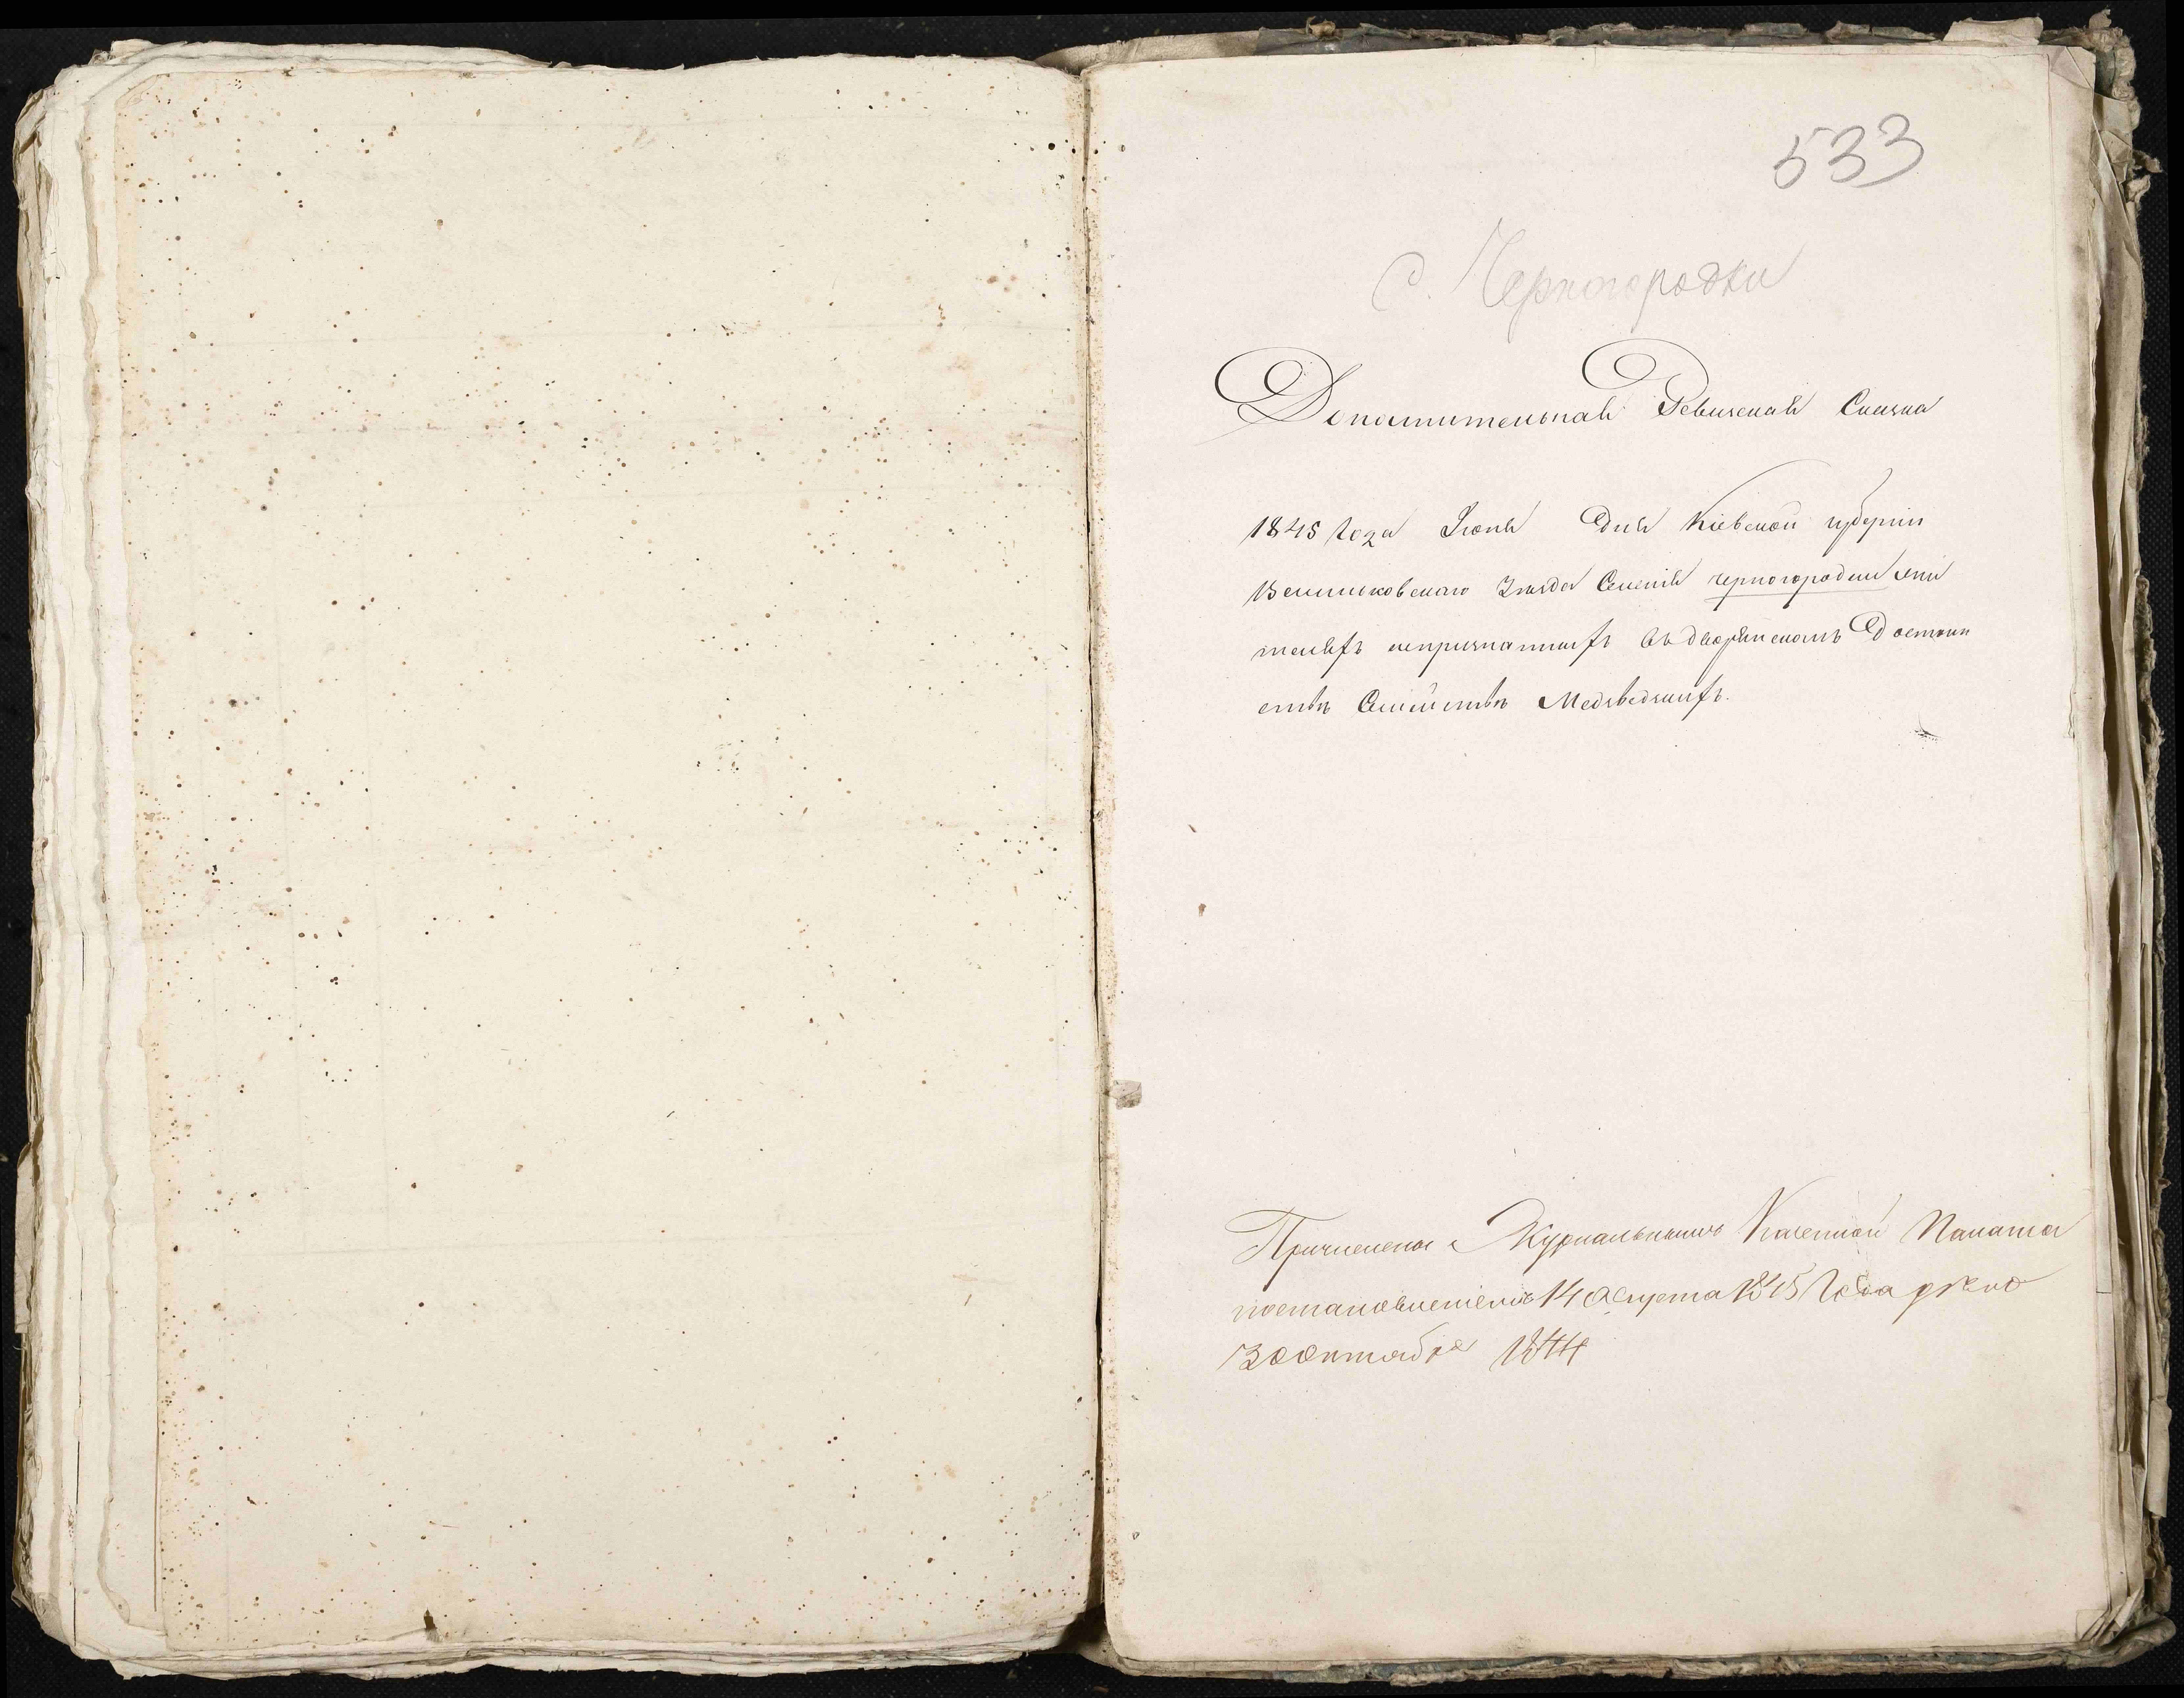 533
с. Черногородки
Дополнительная Ревизская Сказка
1845 года Іюня Дня Кіевской губерніи
Васильковскаго Уѣзда Селенія черногородки жи
телях непризнанных въ дворянскомъ Достоин
ствѣ Семействѣ Медведских.
Причислены Журнальнымъ Казенной Палаты
постановленіемъ 14 августа 1845 Года
30 октября 1844